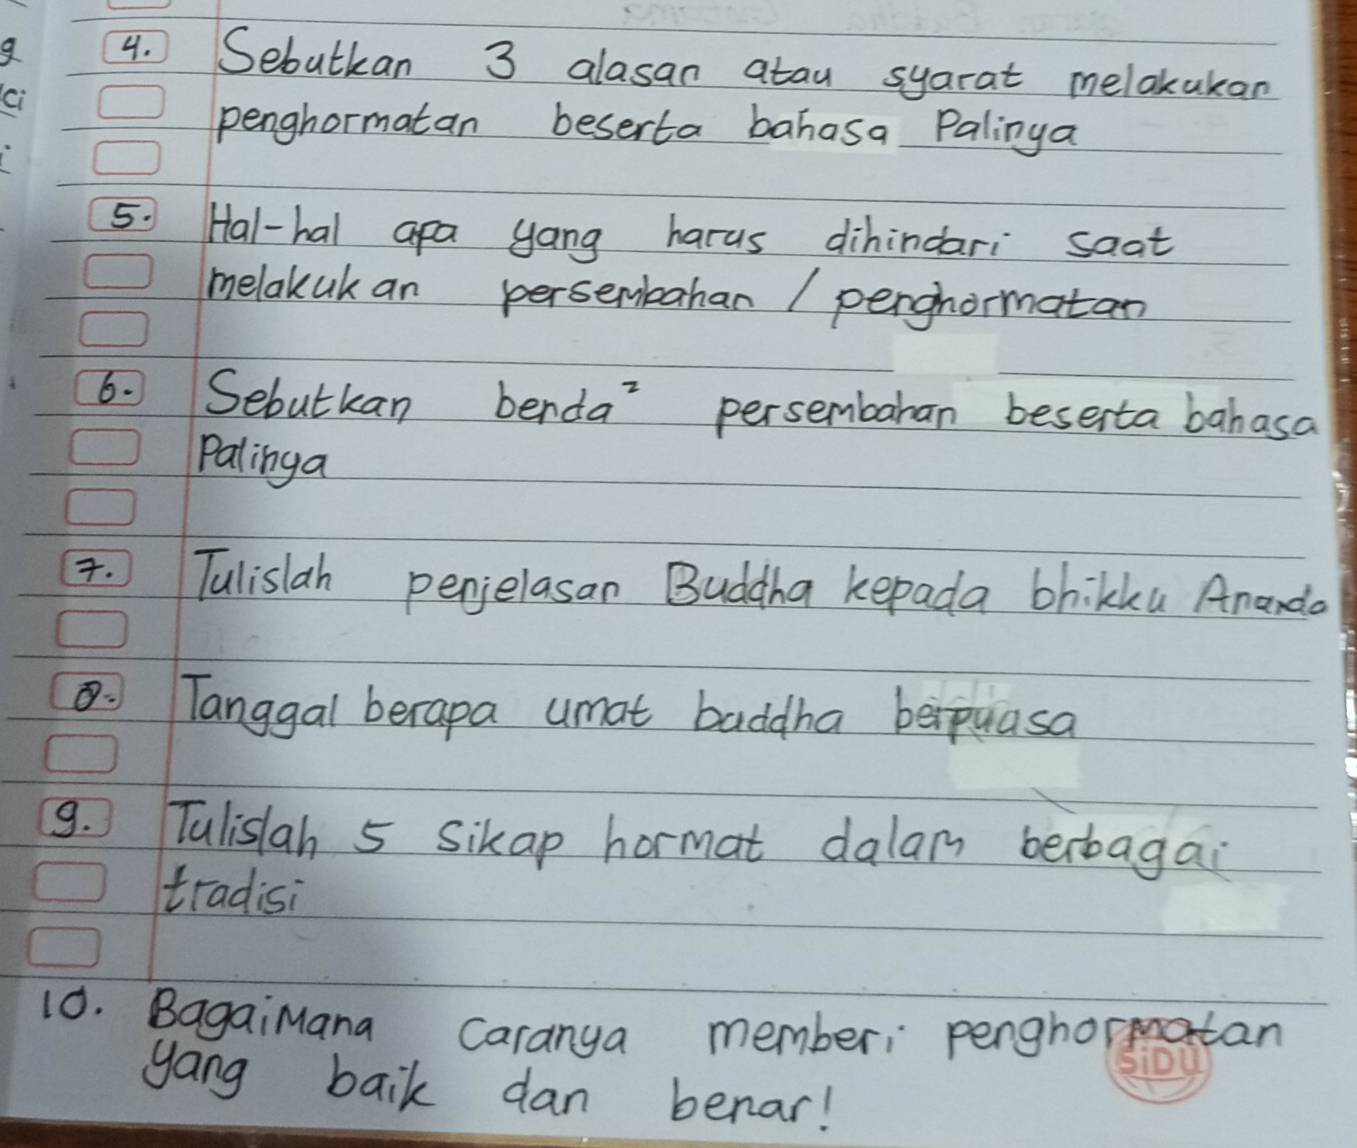 g
ci
4. Sebutkan 3 alasan atau syarat melakukan
penghormatan beserta bahasa Palinya
5. Hal-hal apa yang harus dihindari saat
melakukan persembahan / penghormatan
6. Sebutkan benda² persembahan beserta bahasa
Palinya
7. Tulislah penjelasan Buddha kepada bhikku Ananda
8. Tanggal berapa umat buddha berpuasa
9. Tulislah 5 sikap hormat dalam berbagai
tradisi
10. Bagaimana caranya memberi penghormatan
SiDU
yang baik dan benar!